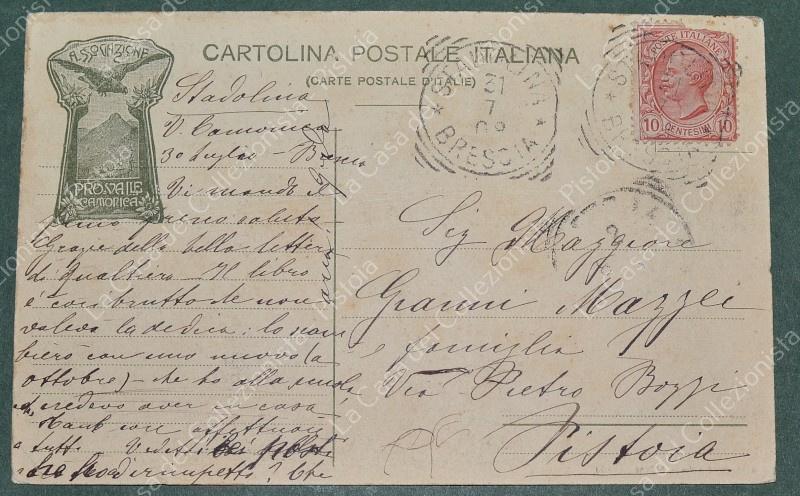 ASSOCIAZIONE
PRO VALLE
CAMONICA
CARTOLINA POSTALE ITALIANA
(CARTE POSTALE D'ITALIE)
BRESCIA
31
7
POSTE ITALIANE
10 CENTESIMI 10
Stadolina
V. Camonica
30 luglio - Brescia
Vi mando il
primo saluto
Grazie della bella lettera
di Gualtiero - Il libro
è così brutto che non
valeva la dedica: lo cam
bierò con uno nuovo (a
ottobre) - che ho alla scuola
credevo aver in casa
Tanti affettuosi
a tutti
Sig Maggiore
Gianni Mazzei
e famiglia
Via Pietro Bozzi
Pistoia
La Casa del Collezionista Pistoia